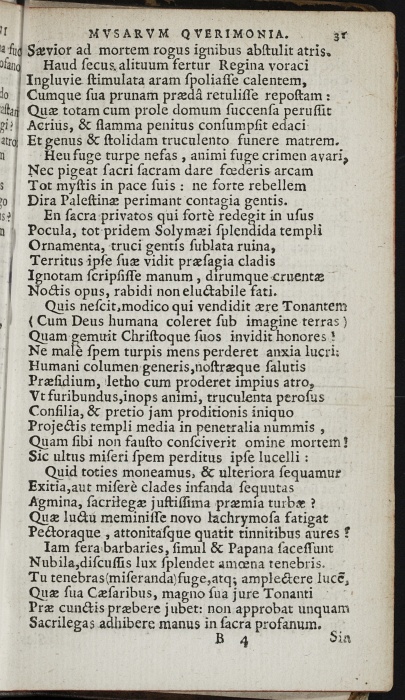 MVSARVM QVERIMONIA. 31
Sævior ad mortem rogus ignibus abſtulit atris.
Haud ſecus alituum fertur Regina voraci
Ingluvie ſtimulata aram ſpoliaſſe calentem,
Cumque ſua prunam prædâ retuliſſe repoſtam:
Quæ totam cum prole domum ſuccenſa peruſſit
Acrius, & flamma penitus conſumpſit edaci
Et genus & ſtolidam truculento funere matrem.
Heu fuge turpe nefas, animi fuge crimen avari,
Nec pigeat ſacri ſacram dare fœderis arcam
Tot myſtis in pace ſuis: ne forte rebellem
Dira Paleſtinæ perimant contagia gentis.
En ſacra privatos qui fortè redegit in uſus
Pocula, tot pridem Solymæi ſplendida templi
Ornamenta, truci gentis ſublata ruina,
Territus ipſe ſuæ vidit præſagia cladis
Ignotam ſcripſiſſe manum, dirumque cruentæ
Noctis opus, rabidi non eluctabile fati.
Quis neſcit, modico qui vendidit ære Tonantem
(Cum Deus humana coleret ſub imagine terras)
Quam gemuit Chriſtoque ſuos invidit honores!
Ne malè ſpem turpis mens perderet anxia lucri:
Humani columen generis, noſtræque ſalutis
Præſidium, letho cum proderet impius atro,
Vt furibundus, inops animi, truculenta peroſus
Conſilia, & pretio jam proditionis iniquo
Projectis templi media in penetralia nummis,
Quam ſibi non fauſto conſciverit omine mortem!
Sic ultus miſeri ſpem perditus ipſe lucelli:
Quid toties moneamus, & ulteriora ſequamur
Exitia, aut miſerè clades infanda ſequutas
Agmina, ſacrilegæ juſtiſſima præmia turbæ?
Quæ luctu meminiſſe novo lachrymoſa fatigat
Pectoraque, attonitaſque quatit tinnitibus aures?
Iam fera barbaries, ſimul & Papana faceſſunt
Nubila, diſcuſſis lux ſplendet amœna tenebris.
Tu tenebras (miſeranda) fuge, atq; amplectere lucē,
Quæ ſua Cæſaribus, magno ſua jure Tonanti
Præ cunctis præbere jubet: non approbat unquam
Sacrilegas adhibere manus in ſacra profanum.
B 4 Sin